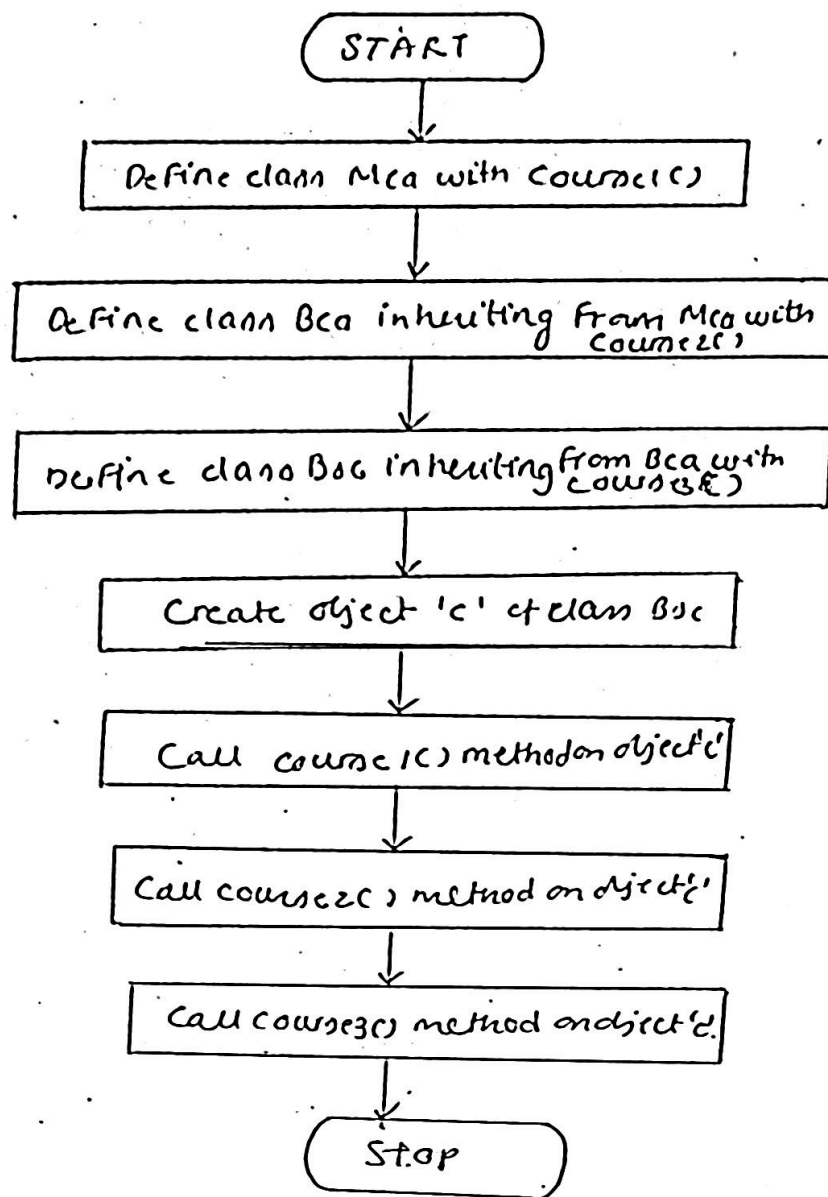 START
Define class Mca with course1()
Define class Bca inheriting from Mca with
course2()
Define class Bsc inheriting from Bca with
course3()
Create object 'c' of class Bsc
Call course1() method on object 'c'
Call course2() method on object 'c'
Call course3() method on object 'c'.
Stop